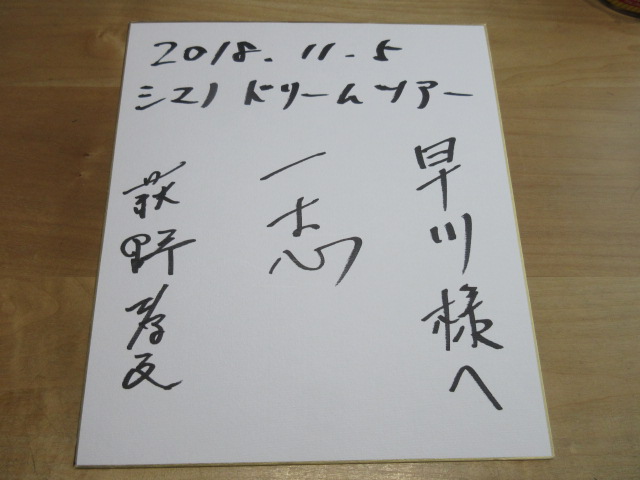 2018.11.5
ミズノドリームツアー
早川様へ
一志
萩野孝友